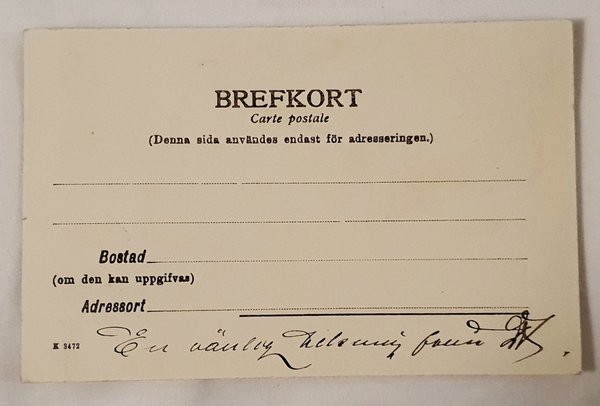 BREFKORT
Carte postale
(Denna sida användes endast för adresseringen.)
Bostad
(om den kan uppgifvas)
Adressort
K 3472
En vänlig helsning från